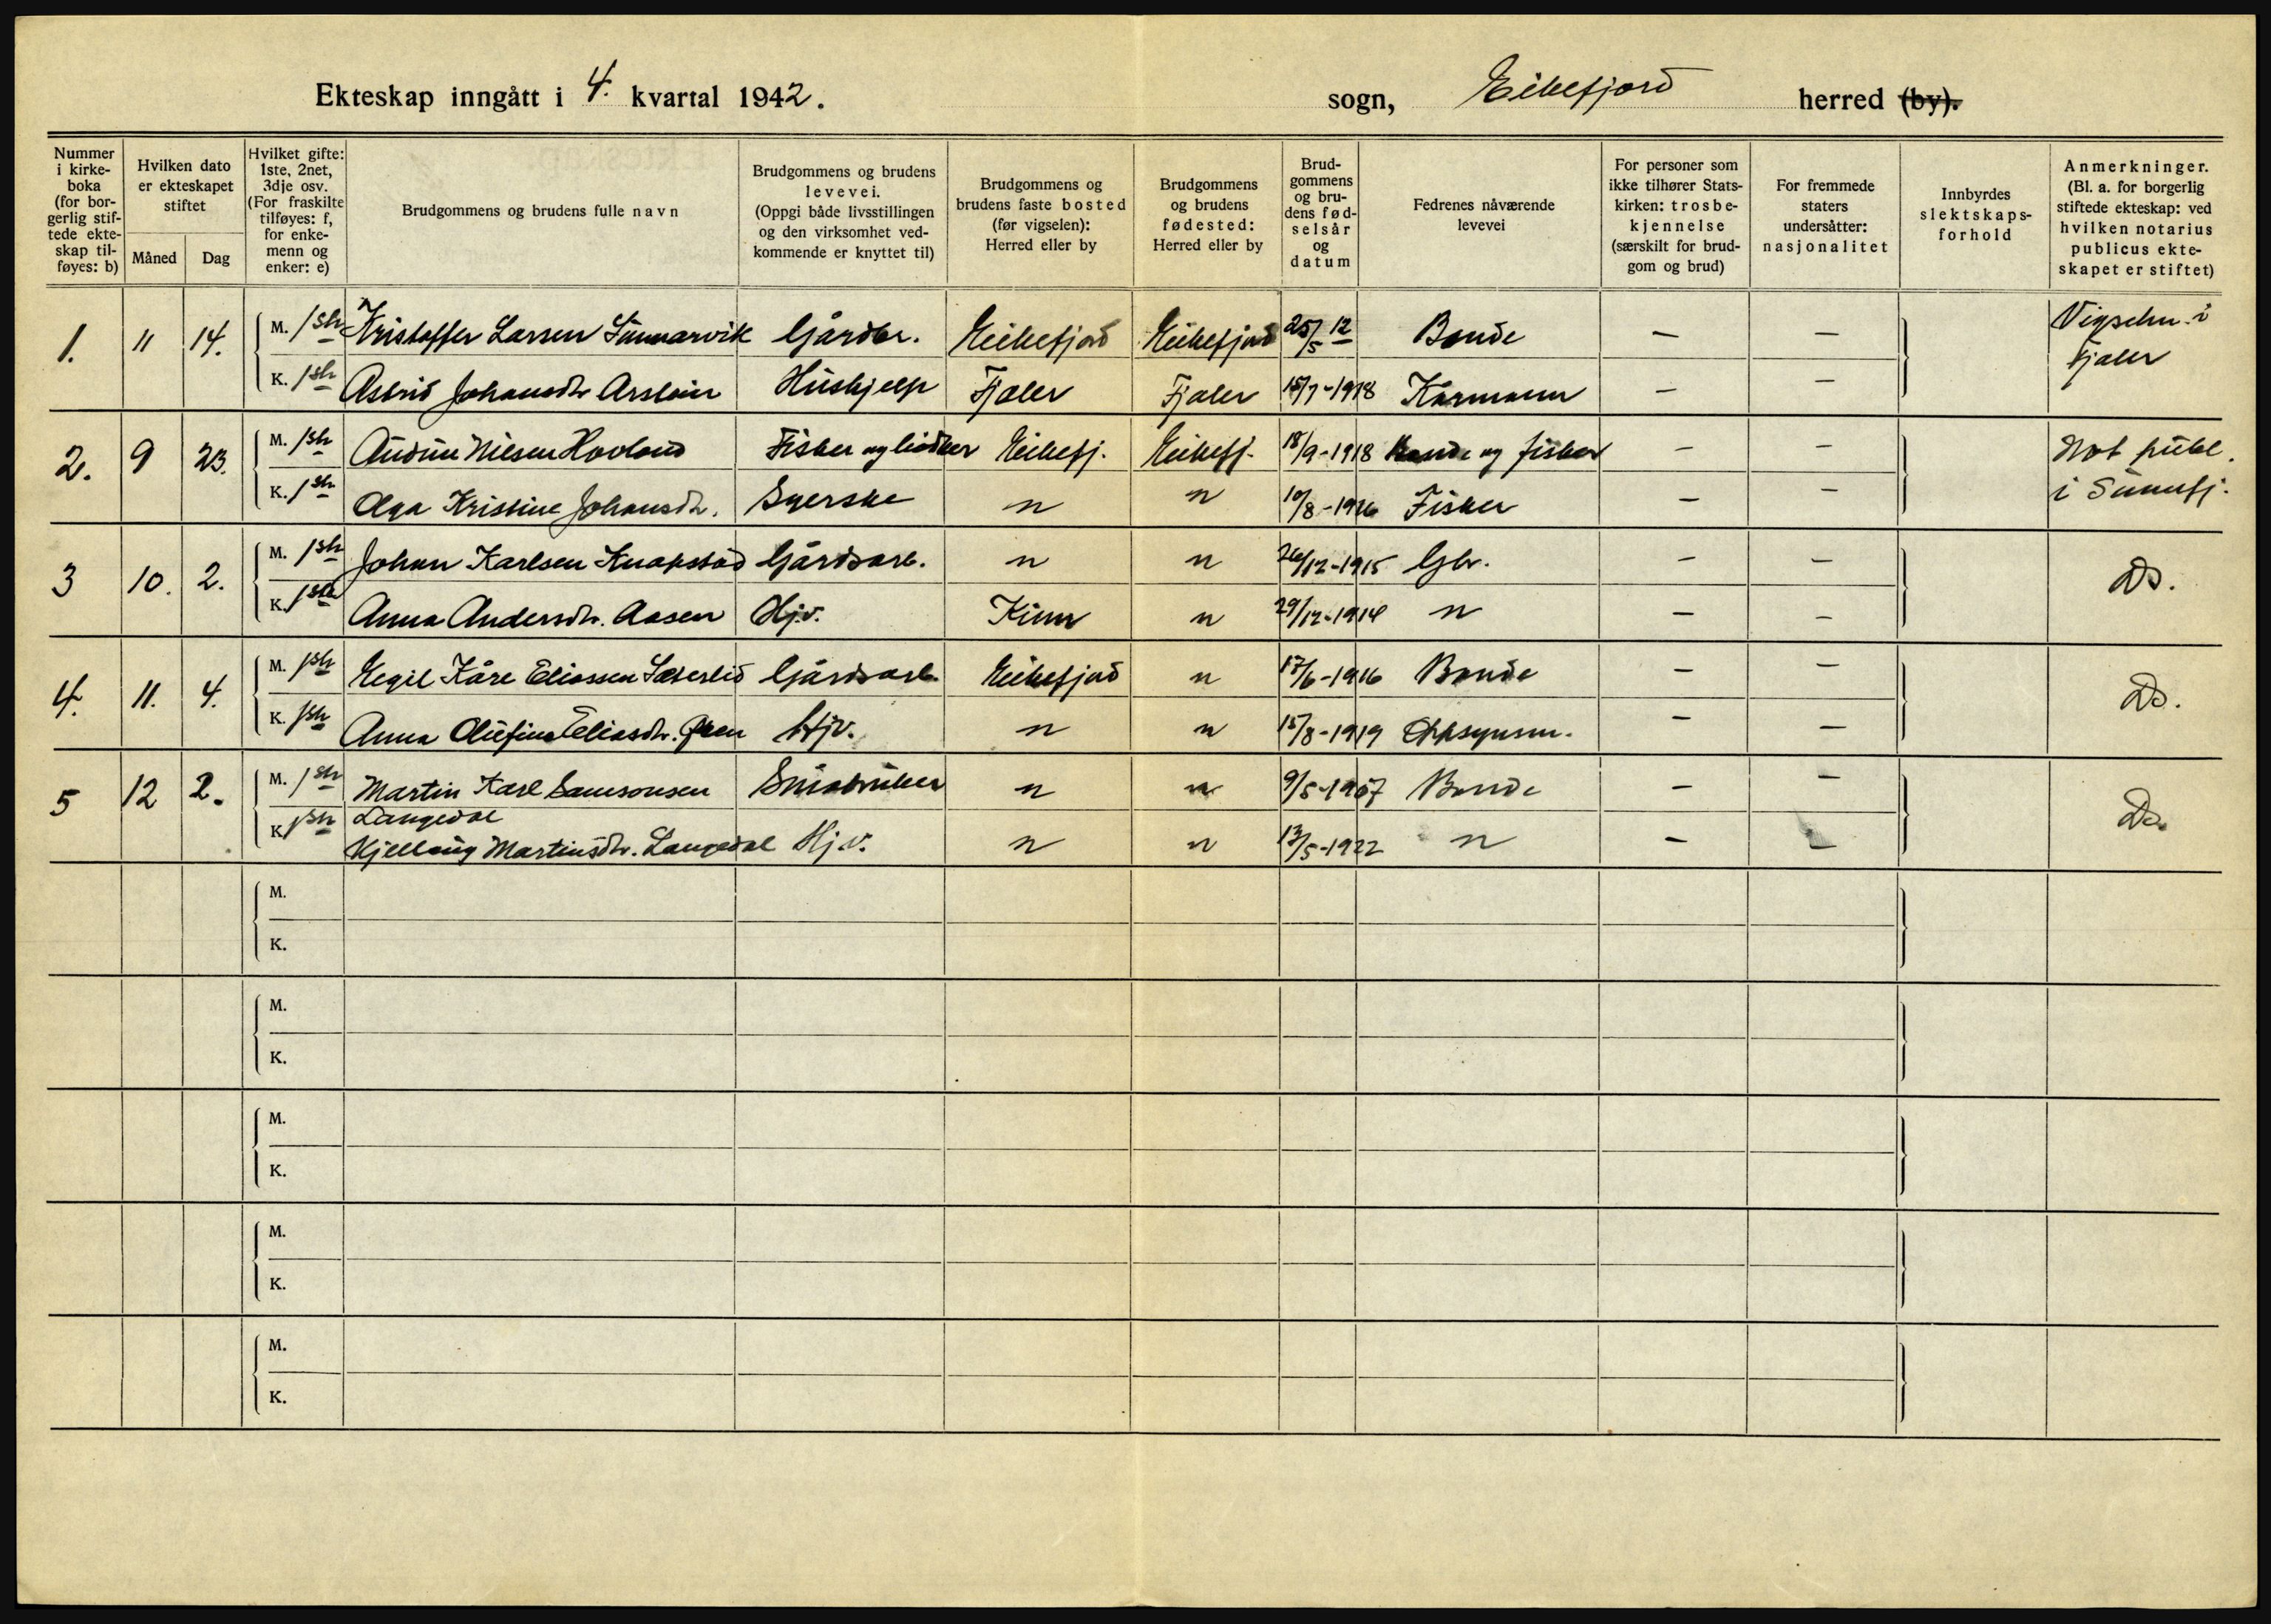 Ekteskap inngått i 4. kvartal 1942. sogn, Eikefjord herred (by).
Nummer i kirke-boka (for bor-gerlig stif-tede ekte-skap til-føyes: b)
Hvilken dato er ekteskapet stiftet
Måned Dag
Hvilket gifte: 1ste, 2net, 3dje osv. (For fraskilte tilføyes: f, for enke-menn og enker: e)
Brudgommens og brudens fulle navn
Brudgommens og brudens levevei. (Oppgi både livsstillingen og den virksomhet ved-kommende er knyttet til)
Brudgommens og brudens faste bosted (før vigselen): Herred eller by
Brudgommens og brudens fødested: Herred eller by
Brud-gommens og bru-dens fød-selsår og datum
Fedrenes nåværende levevei
For personer som ikke tilhører Stats-kirken: trosbe-kjennelse (særskilt for brud-gom og brud)
For fremmede staters undersåtter: nasjonalitet
Innbyrdes slektskaps-forhold
Anmerkninger. (Bl. a. for borgerlig stiftede ekteskap: ved hvilken notarius publicus ekte-skapet er stiftet)
1. 11 14. M. 1ste Kristoffer Larsen Sunnarvik Gårdbr. Eikefjord Eikefjord 25/5 12 Bonde — — Vigselen i
K. 1ste Astrid Johansdtr Arstein Hushjelp Fjaler Fjaler 15/7-1918 Kårmann — — Fjaler
2. 9 23. M. 1ste Audun Nilsen Hovland Fisker og Eikefj. Eikefj. 18/9-1918 Bonde og fisker — — Not publ.
K. 1ste Olga Kristine Johansdtr. Syerske " " 10/8-1916 Fisker — — i Sunnfj.
3 10. 2. M. 1ste Johan Karlsen Knapstad Gårdsarb. " " 26/12-1915 Gbr. — — Do.
K. 1ste Anna Andersdtr. Aasen Hj.v. Kinn " 29/12-1914 " — —
4. 11. 4. M. 1ste Eegil Kåre Eliassen Sæterlid Gårdsarb. Eikefjord " 17/6-1916 Bonde — — Do.
K. 1ste Anna Olufine Eliasdtr. Øren Hjv. " " 15/8-1919 Oppsynsm. — —
5 12 2. M. 1ste Martin Karl Samsonsen Småbruker " " 9/5-1907 Bonde — — Do.
Langedal
K. 1ste Kjellaug Martinsdtr. Langedal Hj.v. " " 13/5-1922 " — —
M.
K.
M.
K.
M.
K.
M.
K.
M.
K.